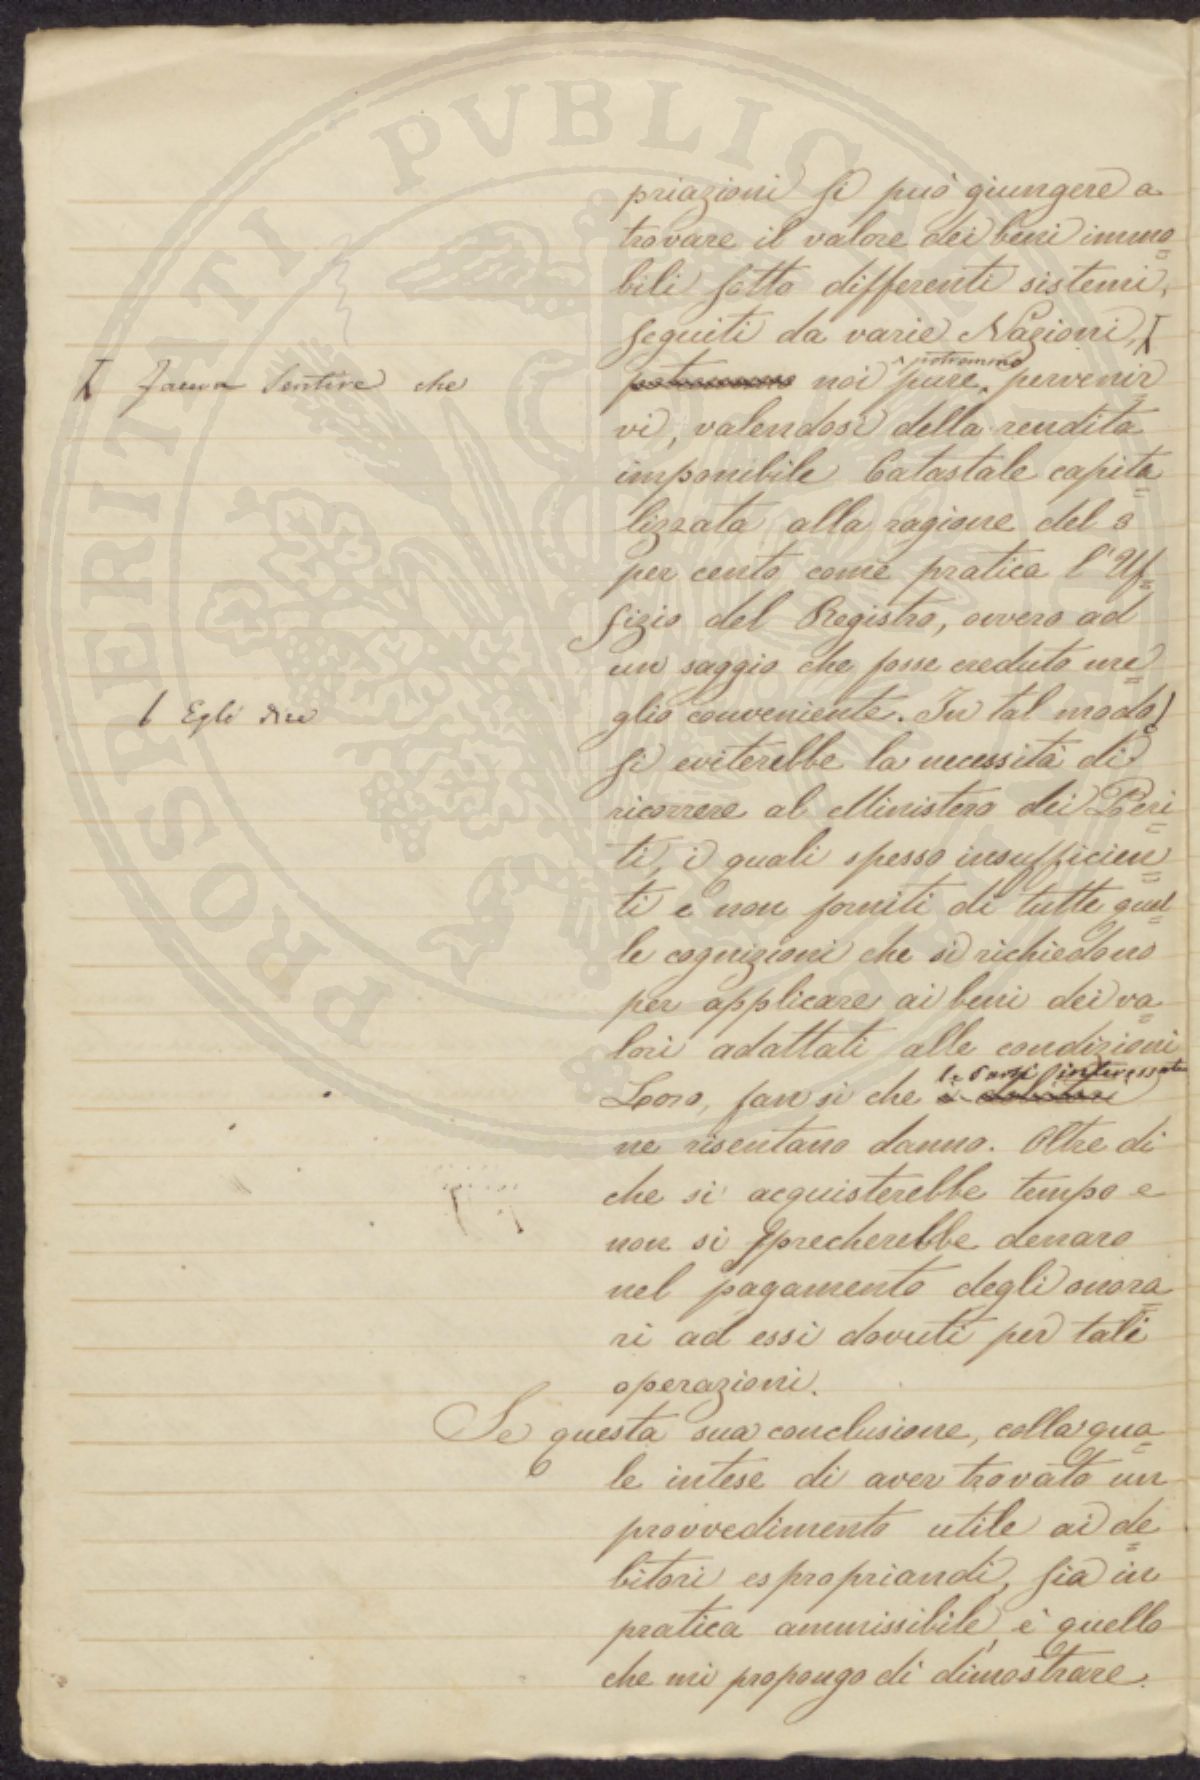 PROSPERITATI PUBLICAE
priazioni si può giungere a
trovare il valore dei beni immo=
bili sotto differenti sistemi,
seguiti da varie Nazioni,
faceva sentire che
potremmo
potremmo noi pure, pervenir
vi, valendosi della rendita
imponibile Catastale capita=
lizzata alla ragione del 8
per cento come pratica l'Uf=
fizio del Registro, ovvero ad
un saggio che fosse creduto me=
glio conveniente. In tal modo
Egli dice
si eviterebbe la necessità di
ricorrere al Ministero dei Peri=
ti, i quali spesso insufficien=
ti e non forniti di tutte quel=
le cognizioni che si richiedono
per applicare ai beni dei va=
lori adattati alle condizioni
le parti interessate
Loro, fan si che i debitori
ne risentano danno. Oltre di
che si acquisterebbe tempo e
non si sprecherebbe denaro
nel pagamento degli onora=
ri ad essi dovuti per tali
operazioni.
Se questa sua conclusione, colla qua=
le intese di aver trovato un
provvedimento utile ai de=
bitori espropriandi, sia in
pratica ammissibile, è quello
che mi propongo di dimostrare.